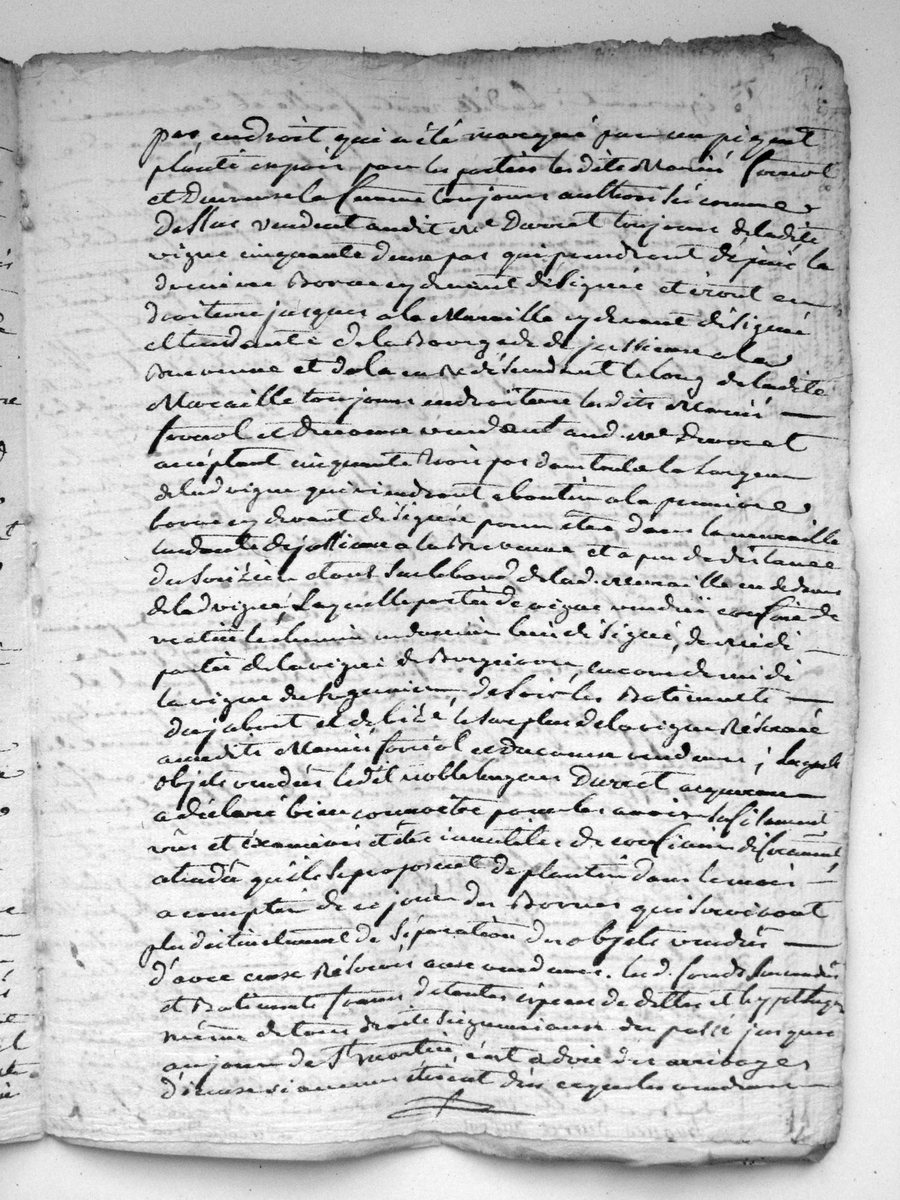 par endroit qui a été marqué par un piquet
planté en paix par les parties lesdits Mariés foriol
et sa femme toujours authorisée comme
dessus vendent audit Me Durret toujours de ladite
vigne cinquante deux pas qui prendront dépuis la
derniere Borne cy devant désignée et iront en
droiture jusques a la Muraille cy devant désignée
et tendante de la Bourgade de jussieux a la
Brevenne et de la en redéscendant le long de ladite
Muraille toujours en droiture lesdits Mariés
foriol et vendent aud. Me Durret
acceptant cinquante trois pas dans toute la largeur
de lad vigne qui viendront aboutir a la premiere
borne cy devant désignée pour etre dans la muraille
tendante de a la Brevenne et a peu de distance
du étant sur le bord de lad. Muraille en dedans
de lad vigne, Laquelle partie de vigne vendue confine de
le chemin en dernier lieu désigné, de midi
partie de la vigne de encore de midi
la vigne du de soir les Batiments
du jabout et de bize le surplus de la vigne Réservée
auxdits Mariés foriol et vendeurs ; Lesquels
objets vendus ledit noble hugues Durret acquereur
a déclaré bien connoitre pour les avoir suffisament
vûs et éxaminés et été inutile de confiner
attendû qu'ils se proposent de planter dans le mois
a compter de ce jour des Bornes qui serviront
de séparation des objets vendus
d'avec ceux Réservés aux vendeurs. Les d. fonds sus vendus
et Batiments francs de toutes éspeces de dettes et hypotheques
même de tous droits seigneuriaux du passé jusques
au jour de St martin, c'est a dire des arrérages
d'iceux si aucuns étoient dûs ce que les vendeurs